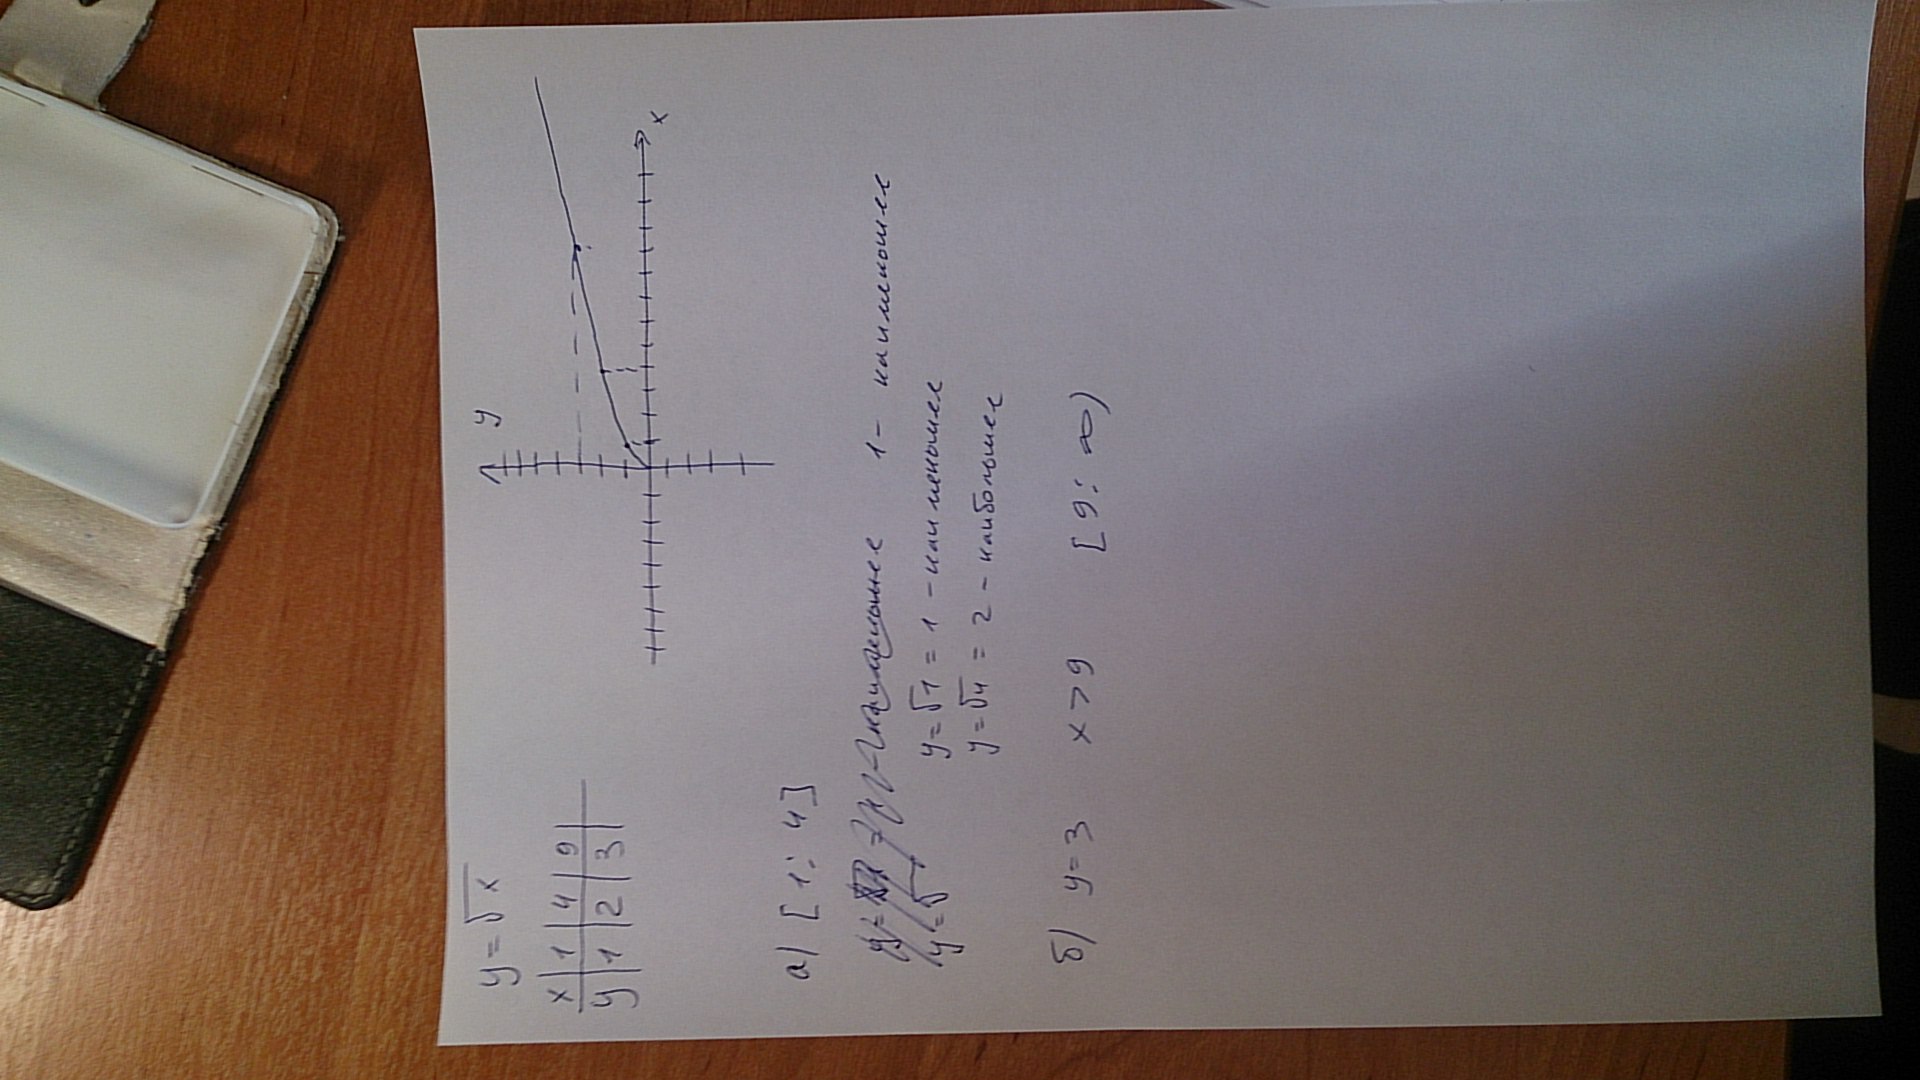 y = √x
x | 1 | 4 | 9 |
y | 1 | 2 | 3 |
y
x
а) [1 ; 4]
1 - наименьшее
y = √1 = 1 - наименьшее
y = √4 = 2 - наибольшее
б) y = 3 x > 9 [9 ; ∞)